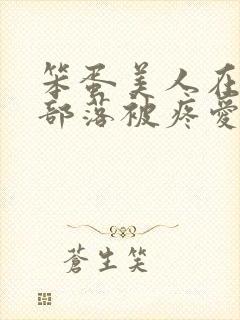 笨蛋美人在
部落被疼愛
蒼生笑